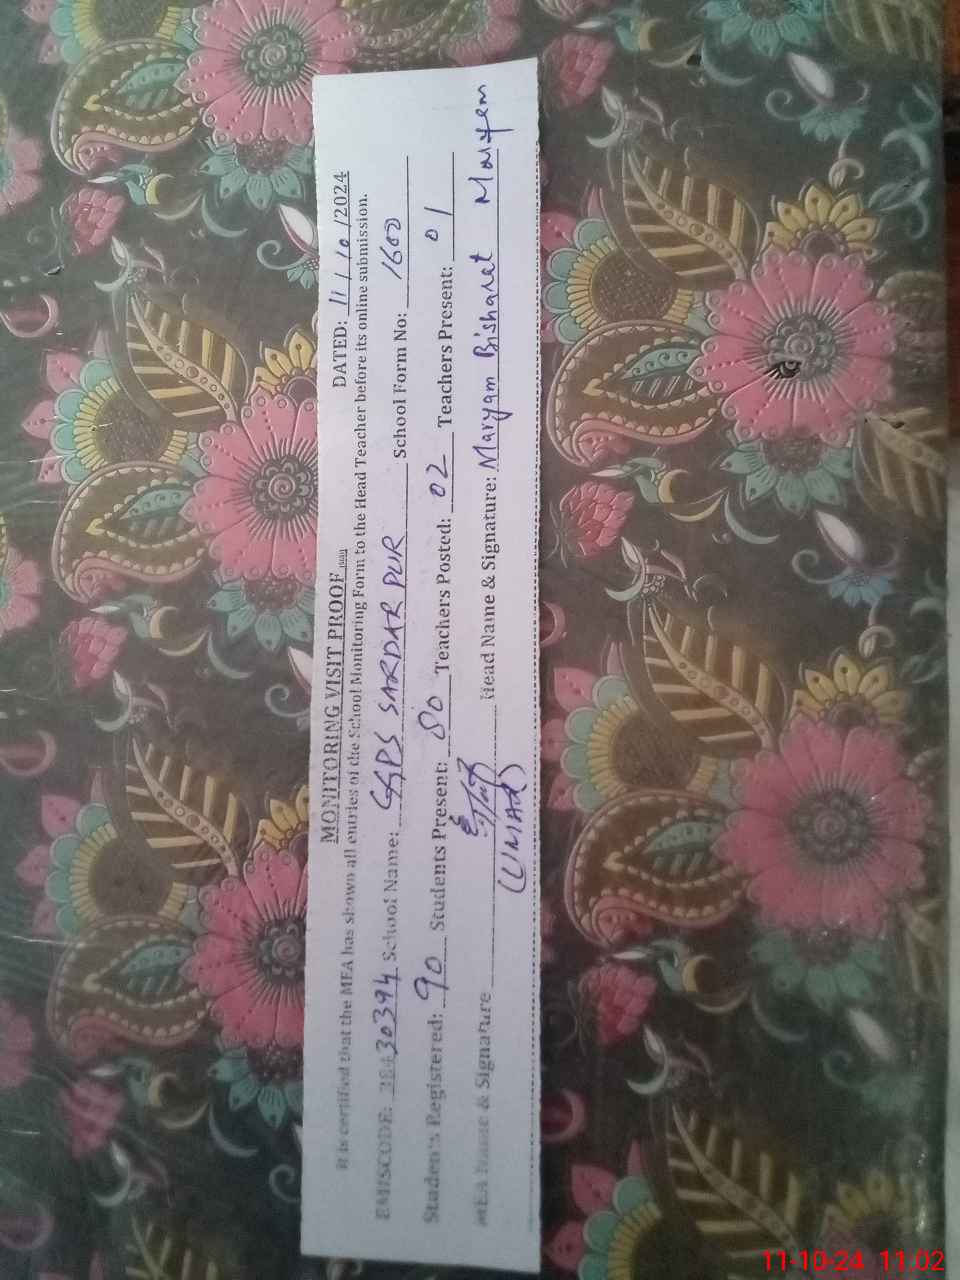 MONITORING VISIT PROOF
DATED: 11/10/2024
It is certified that the MEA has shown all entries of the School Monitoring Form to the Head Teacher before its online submission.
EMISCODE: 30394 School Name: GGPS SARDAR PUR School Form No: 1600
Students Registered: 90 Students Present: 80 Teachers Posted: 02 Teachers Present: 01
MEA Name & Signature Head Name & Signature: Maryam Bisharat Maryem
(UMAR)
11-10-24 11:02